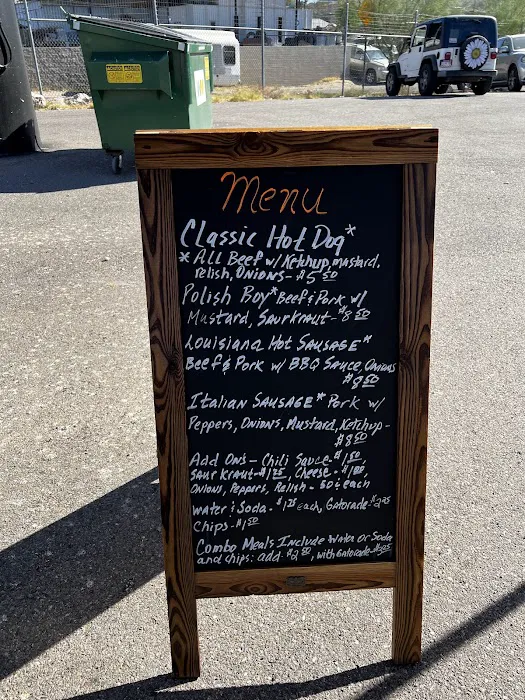 Menu
Classic Hot Dog*
* All Beef w/ Ketchup, mustard,
relish, Onions - $5 50
Polish Boy* Beef & Pork w/
Mustard, Saurkraut - $8 50
Louisiana Hot Sausage*
Beef & Pork w/ BBQ Sauce, Onions
$8 50
Italian Sausage* Pork w/
Peppers, Onions, Mustard, Ketchup -
$8 50
Add Ons - Chili Sauce - $1.50,
Saurkraut - $1.25, Cheese - $1.00,
Onions, Peppers, Relish - 50¢ each
Water & Soda - $1.25 each, Gatorade - $2.25
Chips - $1 50
Combo Meals Include Water or Soda
and chips: add $2 50, with Gatorade